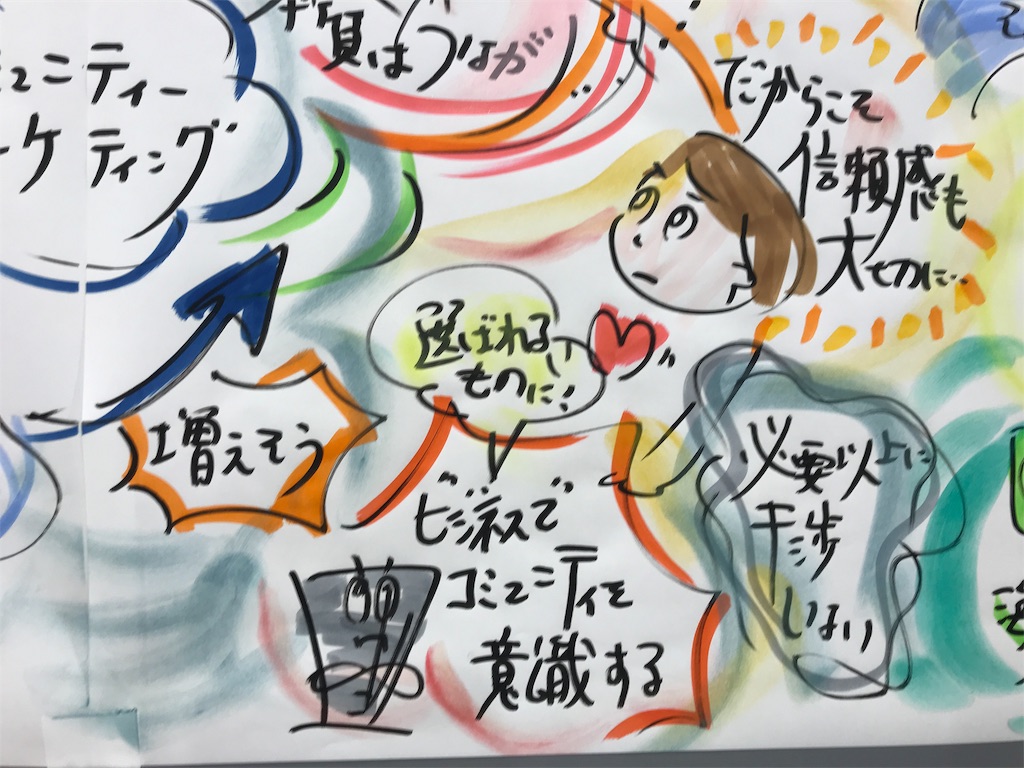 ュニティー
ーケティング
質はつながり
だからこそ
信頼感も
大切に…
選ばれる
ものに!
増えそう
ビジネスで
コミュニティを
意識する
必要以上に
干渉
しない